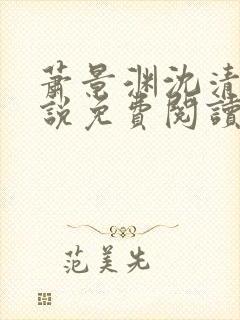 蕭景渊沈清
說免費閱讀
范美先